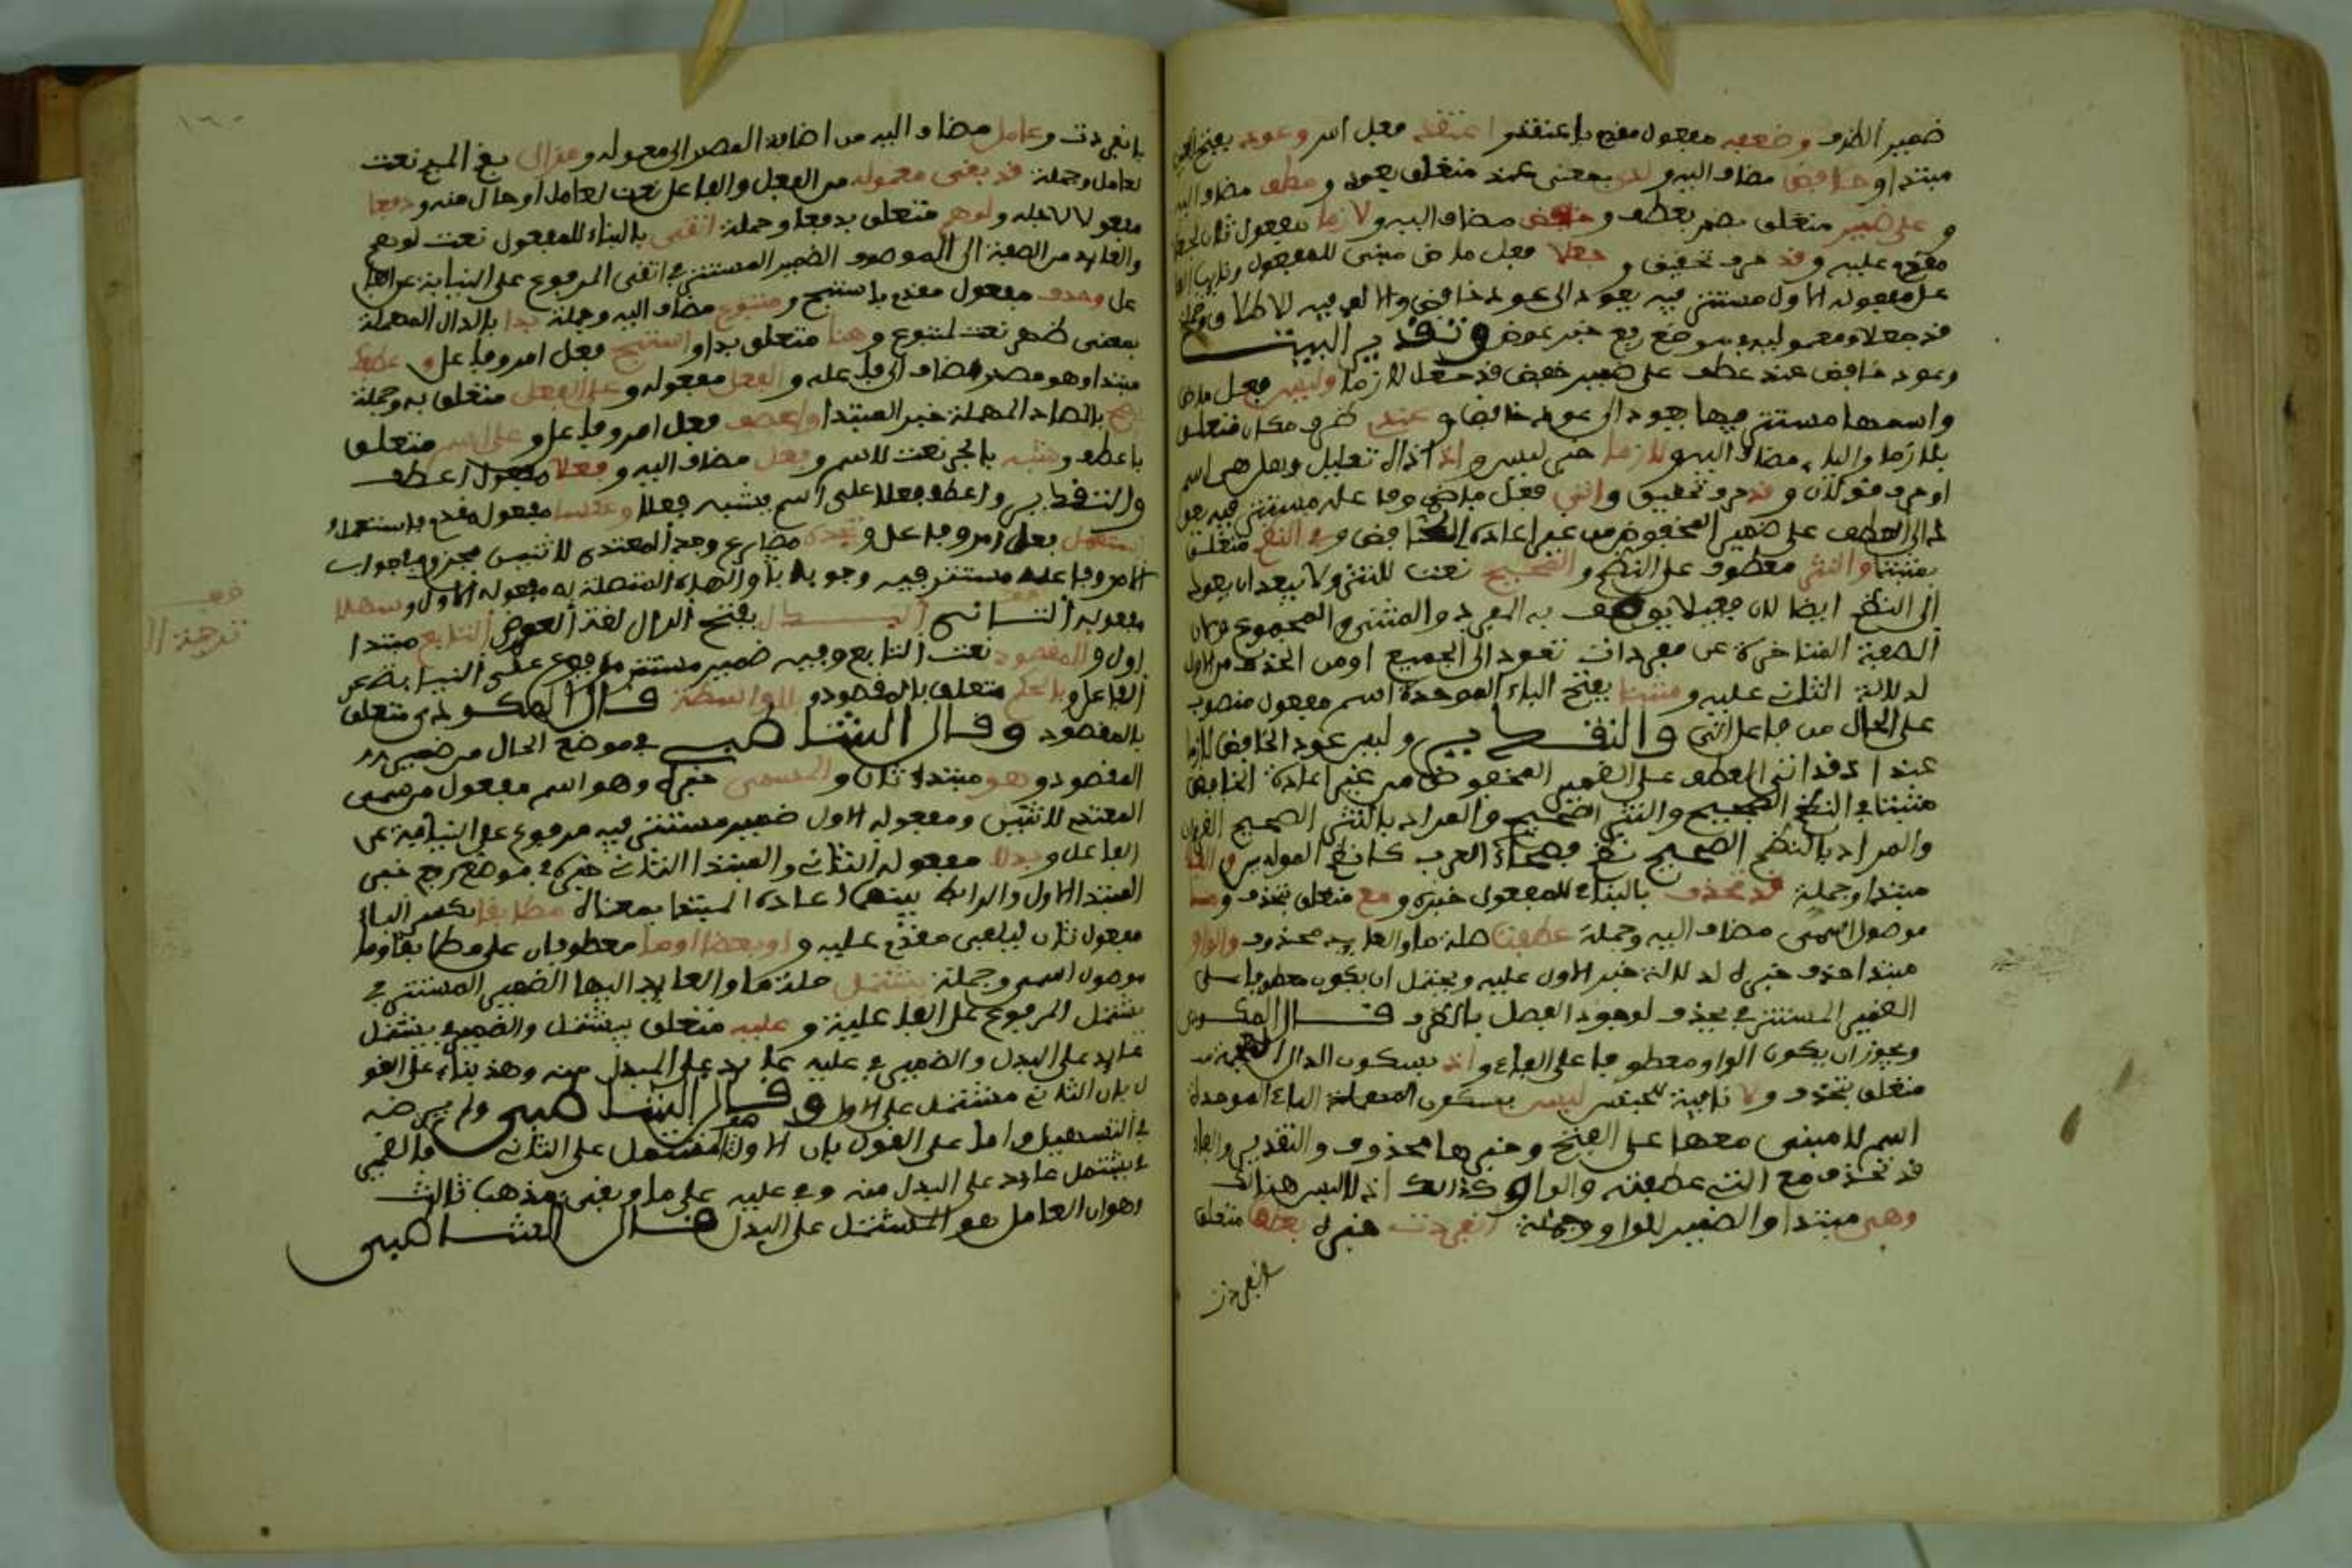 ضمير الظرف وضعفه مفعول مقدم باعتقد واعتقد فعل امر وعود بفتح العين
مبتدا وخافض مضاف اليه ولدى بمعنى عند متعلق بعود وعطف مضاف اليه
وعلى ضمير متعلق بعطف وخفض مضاف اليه ولازما مفعول ثان لجعلا
مقدم عليه وقد حرف تحقيق وجعلا فعل ماض مبنى للمفعول ونايب الفا
عل مفعوله الاول مستتر فيه يعود الى عود خافض والالف فيه للاطلاق وجملة
قد جعلا ومعموليه في موضع رفع خبر عود وتقدير البيت
وعود خافض عند عطف على ضمير خفض قد جعل لازما وليس فعل ماض
واسمها مستتر فيها يعود الى عود خافض وعندى ظرف مكان متعلق
بلازما والياء مضاف اليه ولازما خبر ليس واذ اذال تعليل وهل هي اسم
او حرف قولان وقد حرف تحقيق واتى فعل ماض وفاعله مستتر فيه يعو
د الى العطف على ضمير المخفوض من غير اعادة الخافض وفي النظم متعلق
بمثبتا والنثر معطوف على النظم والصحيح نعت للنثر ولا يبعد ان يعود
الى النظم ايضا لان فعيلا يوصف به المفرد والمثنى والمجموع وكان
الصفة المتاخرة عن مفردات تعود الى الجميع او من الحذف من الاول
لدلالة الثاني عليه ومثبتا بفتح الباء الموحدة اسم مفعول منصوب
على الحال من فاعل اتى والتقدير وليس عود الخافض لازما
عندى اذ قد اتى العطف على الضمير المخفوض من غير اعادة الخافض
مثبتا في النظم الصحيح والنثر الصحيح والمراد بالنثر الصحيح القرءان
والمراد بالنظم الصحيح نظم فصحاء العرب كا نظم المولدين والفا
مبتدا وجملة قد تحذف بالبناء للمفعول خبره ومع متعلق بتحذف وما
موصول اسمى مضاف اليه وجملة عطفت صلة ما والعايد محذوف والواو
مبتدا حذف خبره لدلالة خبر الاول عليه ويحتمل ان يكون معطوفا على
الضمير المستتر في تحذف لوجود الفصل بالظرف قال المكودى
ويجوز ان يكون الواو معطوفا على الفاء واذ بسكون الذال المعجمة
متعلق بتحذف ولا نافية للجنس ليس بسكون الباء الموحدة
اسم لا مبنى معها على الفتح وخبرها محذوف والتقدير والفاء
قد تحذف مع الذي عطفته والواو كذلك اذ لا لبس هنالك
وهي مبتدا والضمير للواو وجملة انفردت خبره بعطف متعلق
بانفردت
بانفردت وعامل مضاف اليه من اضافة المصدر الى مفعوله ومزال بضم الميم نعت
لعامل وجملة قد بقى معموله من الفعل والفاعل نعت لعامل او حال منه ودفعا
مفعولا لاجله ولوهم متعلق بدفعا وجملة اتقى بالبناء للمفعول نعت لوهم
والعايد من الصفة الى الموصوف الضمير المستتر في اتقى المرفوع على النيابة عن الفا
عل وحذف مفعول مقدم باستبح ومتبوع مضاف اليه وجملة بدا بالدال المهملة
بمعنى ظهر نعت لمتبوع وهنا متعلق ببدا واستبح فعل امر وفاعل وعطفك
مبتدا وهو مصدر مضاف الى فاعله والفعل مفعوله وعلى الفعل متعلق به وجملة
يصح بالصاد المهملة خبر المبتدا واعطف فعل امر وفاعل وعلى اسم متعلق
باعطف وشبه بالجر نعت لاسم وفعل مضاف اليه وفعلا مفعول اعطف
والتقدير واعطف فعلا على اسم يشبه فعلا وعكسا مفعول مقدم باستعمل و
استعمل فعل امر وفاعل وتجده مضارع وجد المتعدى لاثنين مجزوم في جواب
الامر وفاعله مستتر فيه وجوبا والهاء المتصلة به مفعوله الاول وسهلا
مفعوله الثاني البدل بفتح الدال لغة العوض التابع مبتدا
اول والمقصود نعت التابع وفيه ضمير مستتر مرفوع على النيابة عن
الفاعل وبالحكم متعلق بالمقصود وبلا واسطة قال المكودى متعلق
بالمقصود وقال الشاطبى في موضع الحال من ضمير
المقصود وهو مبتدا ثان والمسمى خبره وهو اسم مفعول من سمى
المتعدى لاثنين ومفعوله الاول ضمير مستتر فيه مرفوع على النيابة عن
الفاعل وبدلا مفعوله الثاني والمبتدا الثاني خبره في موضع رفع خبر
المبتدا الاول والرابط بينهما اعادة المبتدا بمعناه مطابقا بكسر الباء
مفعول ثان ليلفى مقدم عليه واو بعضا او ما معطوفان على مطابقا وما
موصول اسمى وجملة يشتمل صلة ما والعايد اليها الضمير المستتر في
يشتمل المرفوع على الفاعلية وعليه متعلق بيشتمل والضمير في يشتمل
عايد على البدل والضمير في عليه عايد على المبدل منه وهذا بناء على القو
ل بان الثاني مشتمل على الاول وقال الشاطبى ولم يرضه
في التسهيل واما على القول بان الاول هو المشتمل على الثاني فالضمير
في يشتمل عايد على المبدل منه وفي عليه على ما وبقى مذهب ثالث
وهو ان العامل هو المشتمل على البدل قال الشاطبى
قف
ترجمة ا
١٦٠